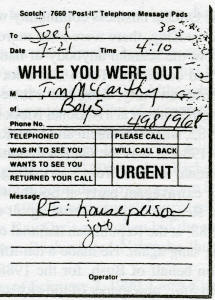 Scotch® 7660 "Post-it" Telephone Message Pads
To Joel
Date 7-21 Time 4:10
WHILE YOU WERE OUT
M Tim McCarthy
of Boys
Phone No. 4981968
TELEPHONED PLEASE CALL
WAS IN TO SEE YOU WILL CALL BACK
WANTS TO SEE YOU URGENT
RETURNED YOUR CALL
Message
RE: houseperson
job
Operator